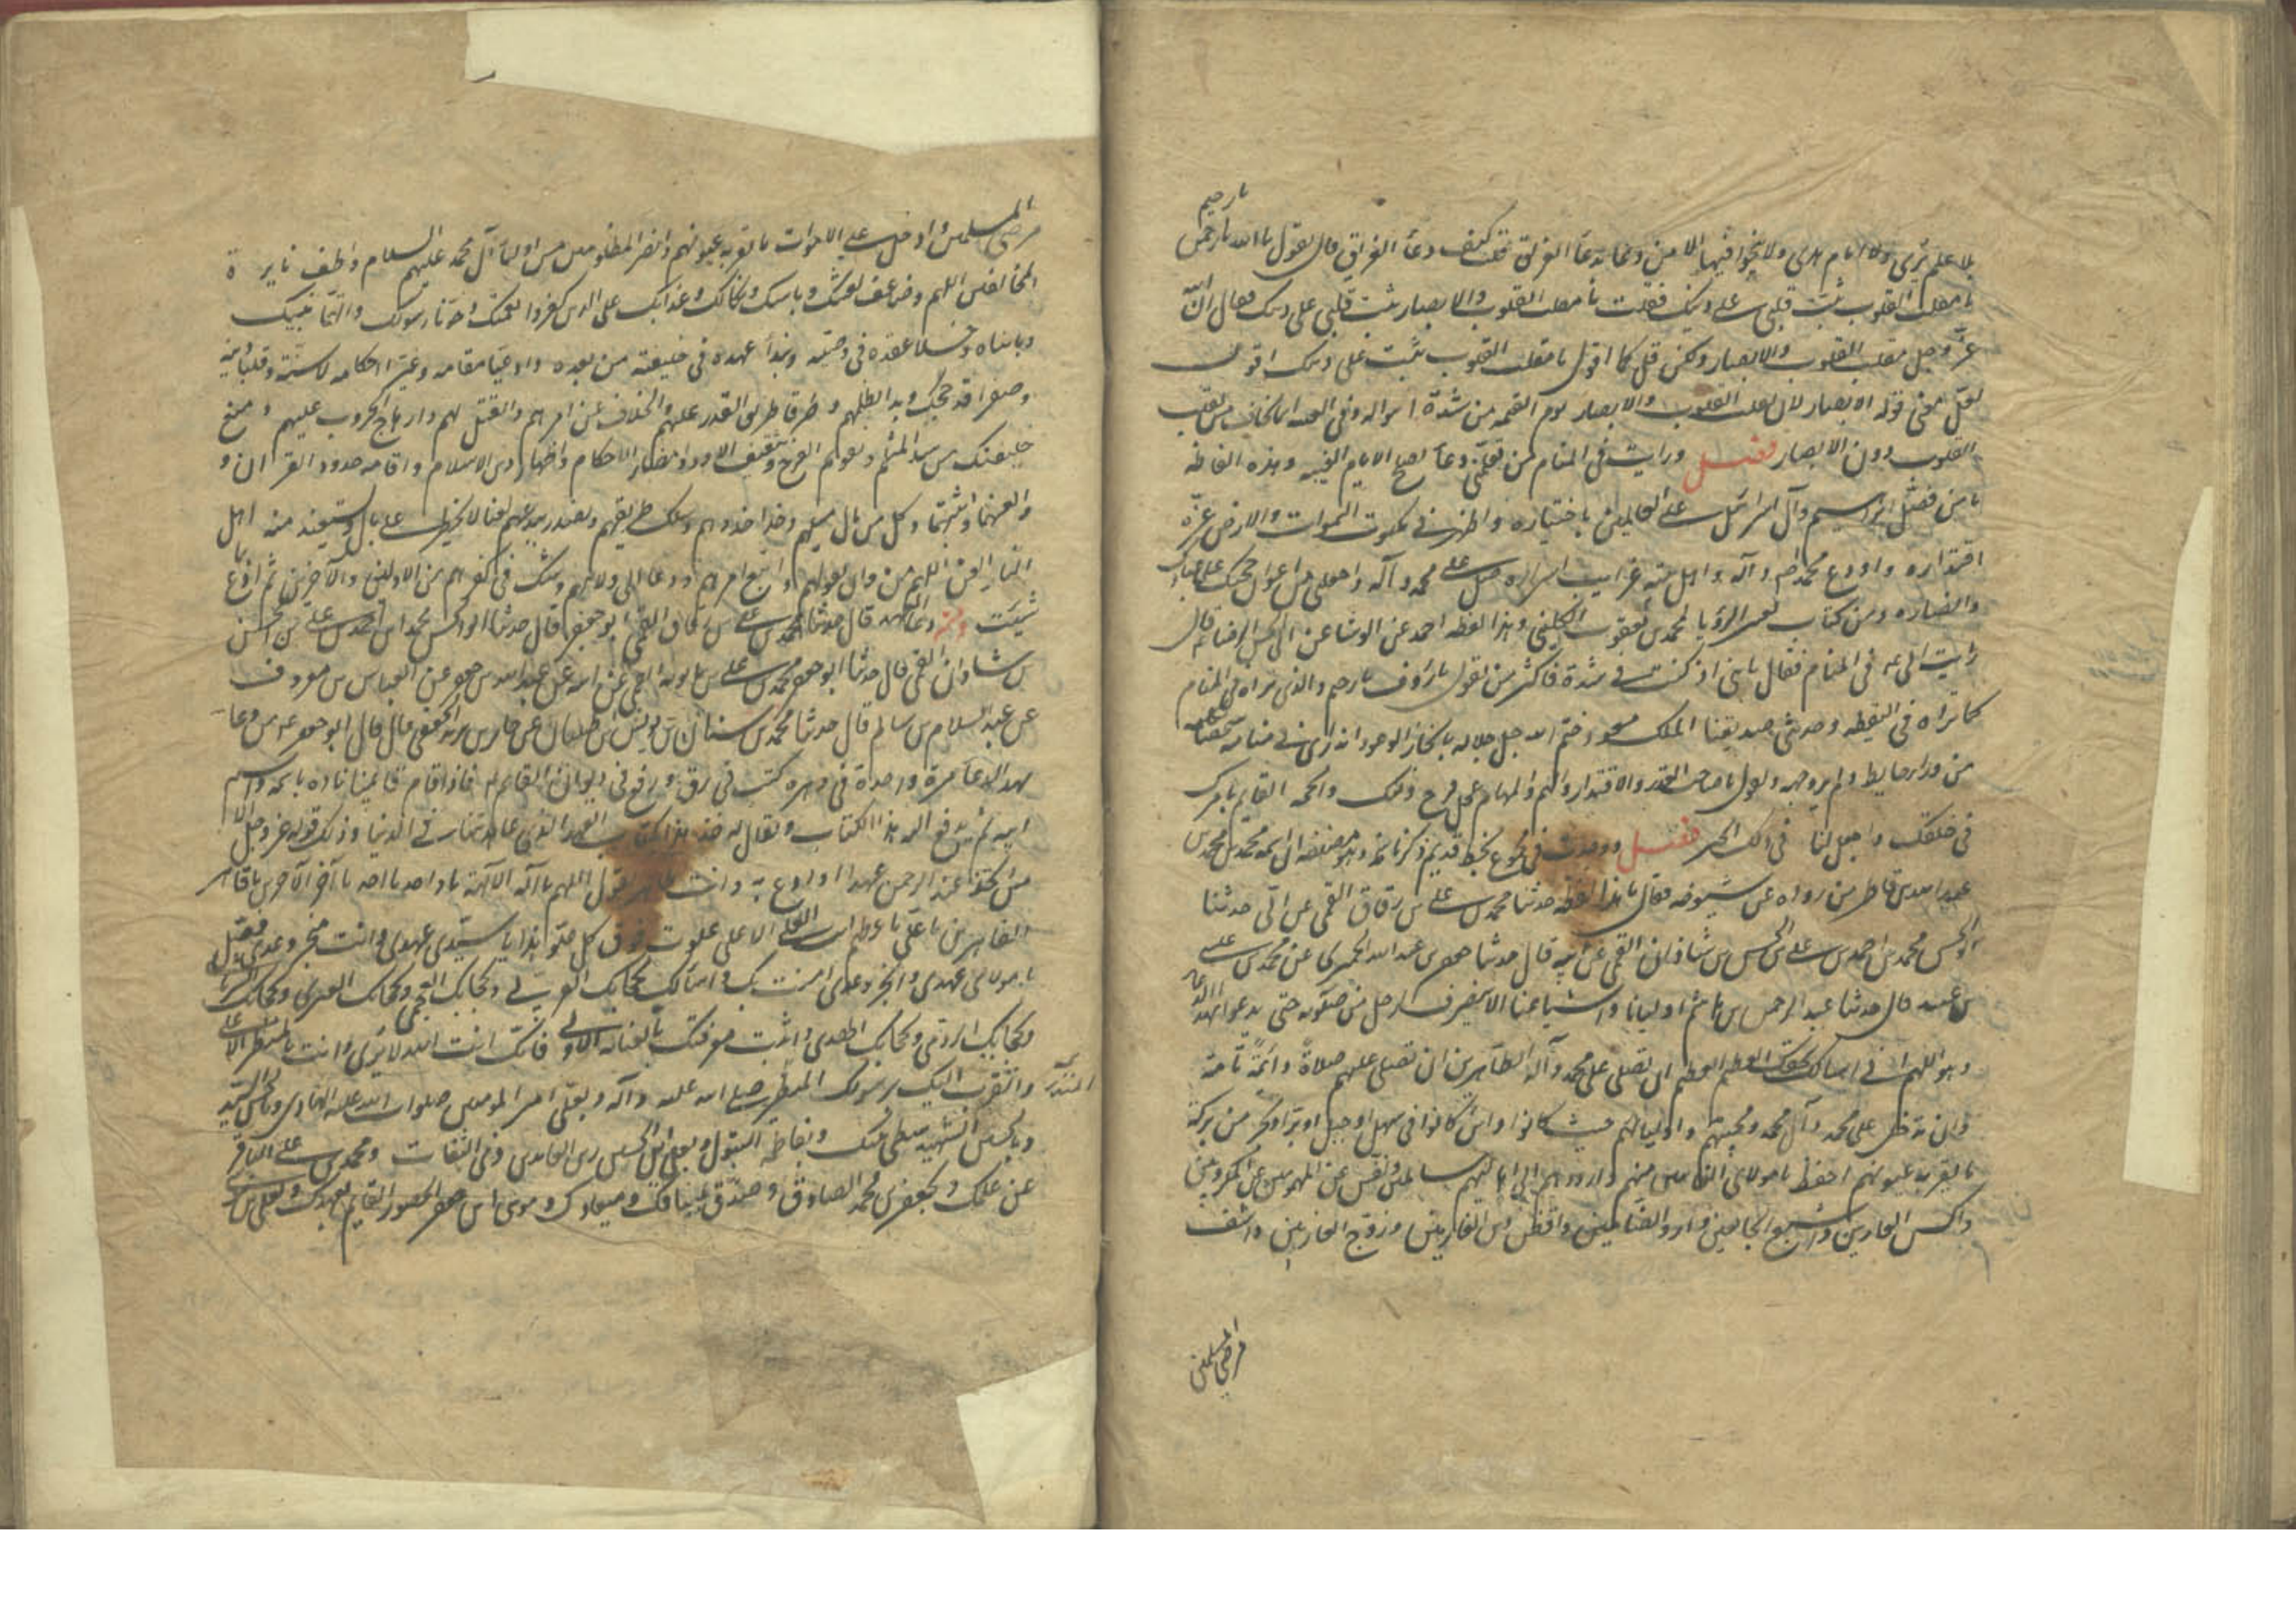 يا رحيم
بلا علم يرى ولا امام هدى ولا ينجوا فيها الا من دعا بدعاء الغريق قلت كيف دعاء الغريق قال يقول يا الله يا رحمن
يا مقلب القلوب ثبت قلبى على دينك فقلت يا مقلب القلوب والابصار ثبت قلبى على دينك فقال ان الله
عز وجل مقلب القلوب والابصار ولكن قل كما اقول يا مقلب القلوب ثبت على دينك اقول
لعل معنى قوله الابصار لان تقلب القلوب والابصار يوم القيمه من شدة اهواله وفى الغيبه انما يخاف من تقلب
القلوب دون الابصار فصل ورايت فى المنام من يعلمنى دعاء يصلح لايام الغيبه وهذه الفاظه
يا من فضل ابراهيم وآل اسرائيل على العالمين باختياره واظهر فى ملكوت السموات والارض عزة
اقتداره واودع محمدا ص وآله واهل بيته غرايب اسراره صل على محمد وآله واجعلنى من اعوان حجتك على عبادك
وانصاره ومن كتاب تعبير الرؤيا لمحمد بن يعقوب الكلينى وهذا لفظه احمد عن الوشا عن ابى الحسن الرضا ع قال
رايت ابى ع فى المنام فقال يا بنى اذ كنت فى شدة فاكثر من ان تقول يا رؤف يا رحيم والذى تراه فى المنام
كما تراه فى اليقظه وحدثنى صديقنا الملك مسعود ختم الله جل جلاله بانجاز الوعود انه راى فى منامه شخصا يكلمه
من وراء حايط ولم ير وجهه ويقول يا صاحب القدر والاقتدار والهمم والمهام عجل فرج وليك والحجه القايم بامرك
فى خلقك واجعل لنا فى ذلك الخير فصل ووجدت فى مجموع بخط قديم ذكر ناسخه وهو مصنفه ان اسمه محمد بن محمد بن
عبد الله بن فاطر من رواه عن شيوخه فقال ما هذا لفظه حدثنا محمد بن على بن رقاق القمى عن ابى حدثنا
ابو الحسن محمد بن احمد بن على بن الحسن بن شاذان القمى عن ابيه قال حدثنا جعفر بن عبد الله الحميرى عن محمد بن على
بن عيسى قال حدثنا عبد الرحمن بن هاشم اوليانا واشياعنا الا ينصرف الرجل من صلوته حتى يدعو بهذا الدعا
وهو اللهم انى اسالك بحقك العظيم العظيم ان تصلى على محمد وآله الطاهرين ان تصلى عليهم صلاة دائمة تامة
وان تدخل على محمد وآل محمد ومحبيهم واوليائهم حيث كانوا واين كانوا فى سهل او جبل او بر او بحر من بركة
ما تقر به عيونهم احفظ يا مولاى الغائبين منهم وارددهم الى اهاليهم سالمين ونفس عن المهمومين وفرج عن المكروبين
واكس العارين واشبع الجائعين وارو الظامئين واقض دين الغارمين وزوج العازبين واشف
مرضى المسلمين
مرضى المسلمين وادخل على الاموات ما تقر به عيونهم وانصر المظلومين من اولياء آل محمد عليهم السلام واطف نايرة
المخالفين اللهم وضاعف لعنتك وباسك ونكالك وعذابك على الذين كفروا نعمتك وخونا رسولك واتهما نبيك
وبايناه وحلا عقده فى وصيته ونبذا عهده فى خليفته من بعده وادعيا مقامه وغيرا احكامه وبدلا سنته وقلبا دينه
وصغرا قدر حججك وبدءا بظلمهم وطرقا طريق الغدر عليهم والخلاف عن امرهم والقتل لهم وارهاج الحروب عليهم ومنع
خليفتك من سد الثلم وتقويم العوج وتثقيف الاود وامضاء الاحكام واظهار دين الاسلام واقامه حدود القرآن و
والعنهما وابنتيهما وكل من مال ميلهم وحذا حذوهم وسلك طريقهم وتصدر ببدعتهم لعنا لا يخطر على بال ويستعيذ منه اهل
النار العن اللهم من دان بقولهم واتبع امرهم ودعا الى ولايتهم وشك فى كفرهم من الاولين والآخرين ثم ادع بما
شئت دعاء العهد قال حدثنا محمد بن على بن رقاق القمى ابو جعفر قال حدثنا ابو الحسن محمد بن احمد بن على بن الحسن
بن شاذان القمى قال حدثنا ابو جعفر محمد بن على بن بابويه القمى عن ابيه عن عبد الله بن جعفر عن العباس بن معروف
عن عبد السلام بن سالم قال حدثنا محمد بن سنان عن يونس بن ظبيان عن جابر بن يزيد الجعفى قال قال ابو جعفر ع من دعا
بهذا الدعاء مرة واحدة فى دهره كتب فى رق ورفع فى ديوان القايم ع فاذا قام قائمنا ناداه باسمه واسم
ابيه ثم يدفع اليه هذا الكتاب ويقال له خذ هذا كتاب العهد الذى عاهدتنا فى الدنيا وذلك قوله عز وجل الا
من اتخذ عند الرحمن عهدا وادع به وانت طاهر تقول اللهم يا اله الآلهة يا واحد يا احد يا آخر الآخرين يا قاهر
القاهرين يا على يا عظيم انت العلى الاعلى علوت فوق كل علو هذا يا سيدى عهدى وانت منجز وعدى فصل
يا مولاى عهدى وانجز وعدى امنت بك واسألك بحجابك العربى وبحجابك العجمى وبحجابك العبرى وبحجابك السريانى
وبحجابك الرومى وبحجابك الهندى واثبت معرفتك بالعناية الاولى فانك انت الله لا ترى وانت بالمنظر الاعلى
واتقرب اليك برسولك المنذر صلى الله عليه وآله وبعلى امير المؤمنين صلوات الله عليه الهادى وبالحسن السيد
وبالحسين الشهيد سبطى نبيك وبفاطمه البتول وبعلى بن الحسين زين العابدين وذى الثفنات ومحمد بن على الباقر
عن علمك وبجعفر بن محمد الصادق وصدق بميثاقك وميعادك وموسى بن جعفر الحصور القايم بعهدك وبعلى بن موسى